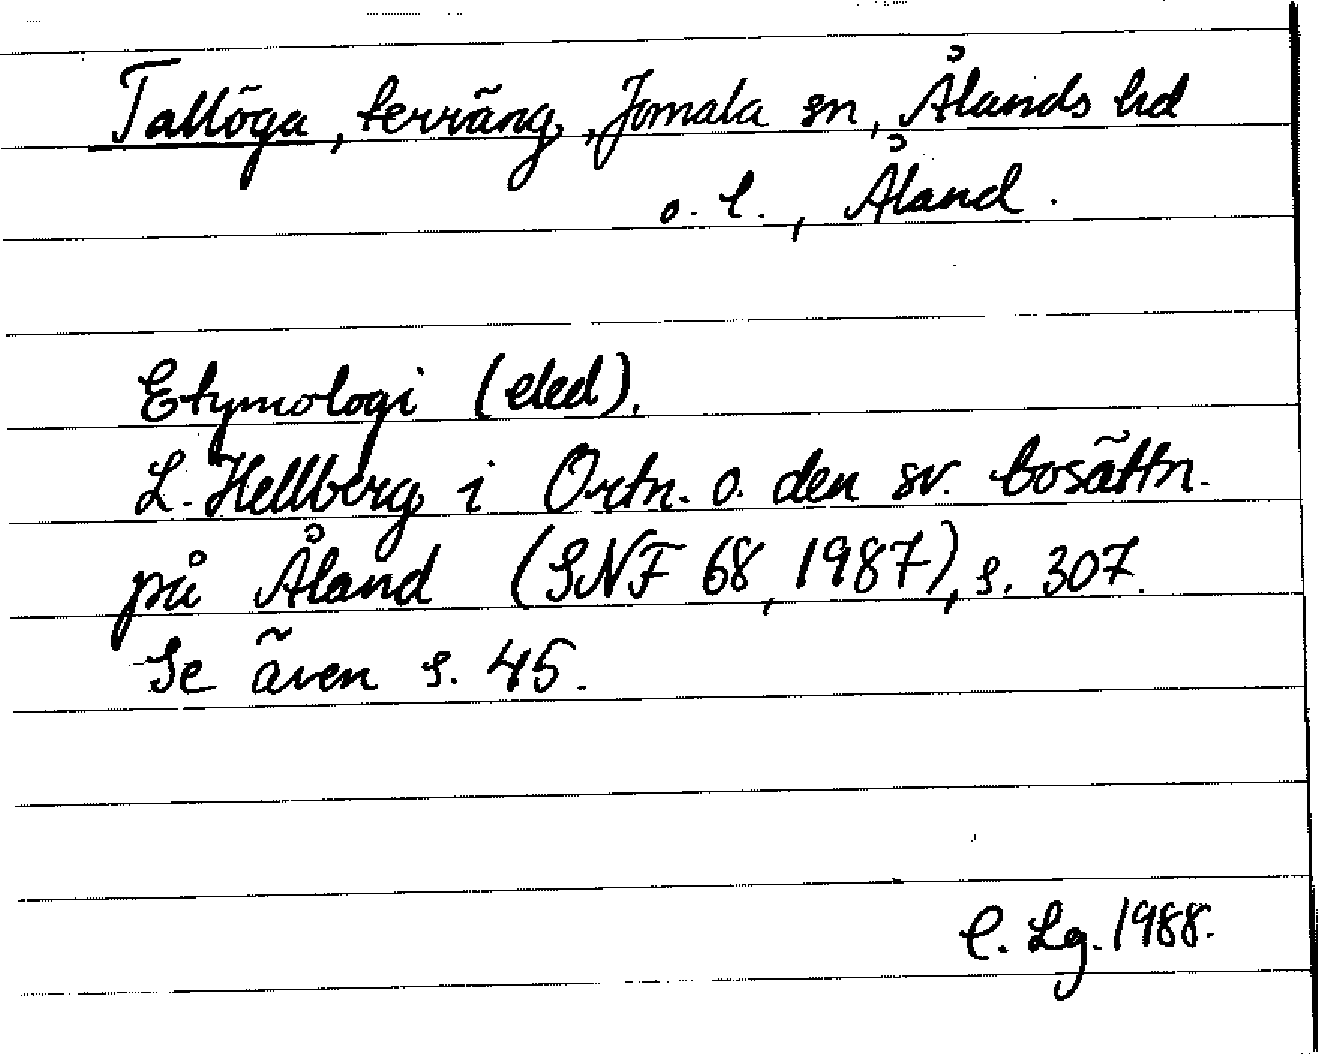 Tallöga, terräng, Jomala sn, Ålands hd
o. l., Åland.
Etymologi (eled).
L. Hellberg i Ortn. o. den sv. bosättn.
på Åland (SNF 68, 1987), s. 307.
Se även s. 45.
C. Lg. 1988.